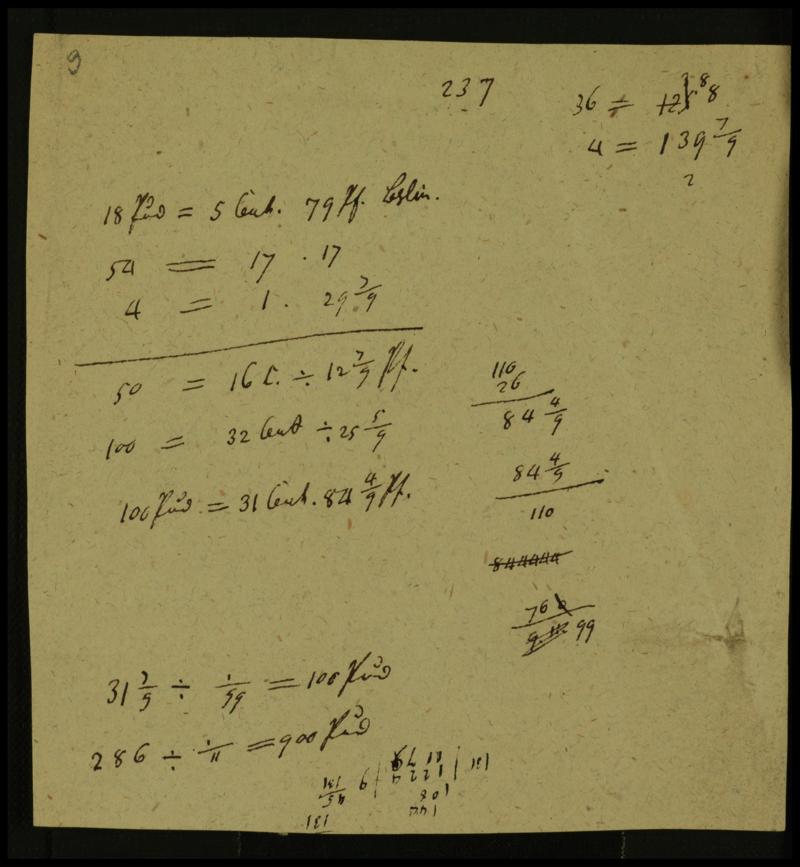 9
237
36 = 1258 8
4 = 139 7/9
2
18 Pud = 5 Cent. 79 Pf. Berlin.
54 = 17 . 17
4 = 1 . 29 7/9
50 = 16 C. ÷ 12 7/9 Pf.
100 = 32 Cent ÷ 25 5/9
100 Pud = 31 Cent. 84 4/9 Pf.
110
26
84 4/9
84 4/9
110
844444
760
99
31 7/9 ÷ 1/99 = 100 Pud
286 ÷ 1/11 = 900 Pud